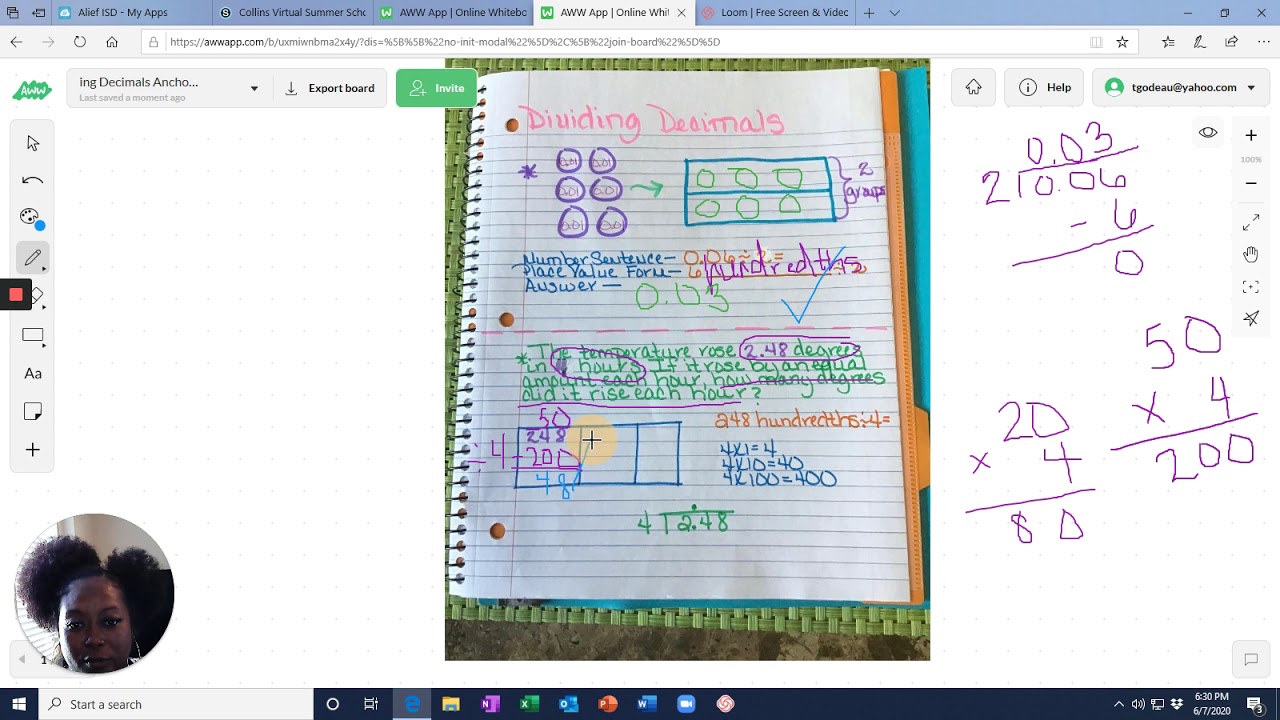 Alief ISD - My Apps
Collins Virtual Summer Scho
AWW App | Online Whitebo
AWW App | Online Whit
Loom | Free Screen & Video
https://awwapp.com/b/uxmiwnbma2x4y/?dis=%5B%5B%22no-init-modal%22%5D%2C%5B%22join-board%22%5D%5D
AWW
ing Decimals Ancho...
Last saved a moment ago
Export board
Invite
Help
tgodeau@yahoo.com
100%
Aa
1
Dividing Decimals
* 0.01 0.01
0.01 0.01
0.01 0.01
2
groups
Number Sentence - 0.06 ÷ 2 =
Place Value Form - 6 hundredths ÷ 2
Answer - 0.03
* The temperature rose 2.48 degrees
in 4 hours. If it rose by an equal
amount each hour, how many degrees
did it rise each hour?
50
÷ 4 248
- 200
48
248 hundredths ÷ 4 =
4x1=4
4x10=40
4x100=400
4 2.48
0.03
2 0.06
- 6
0
50
x 4
200
20
x 4
80
Start a search
6:30 PM
6/7/2020
3